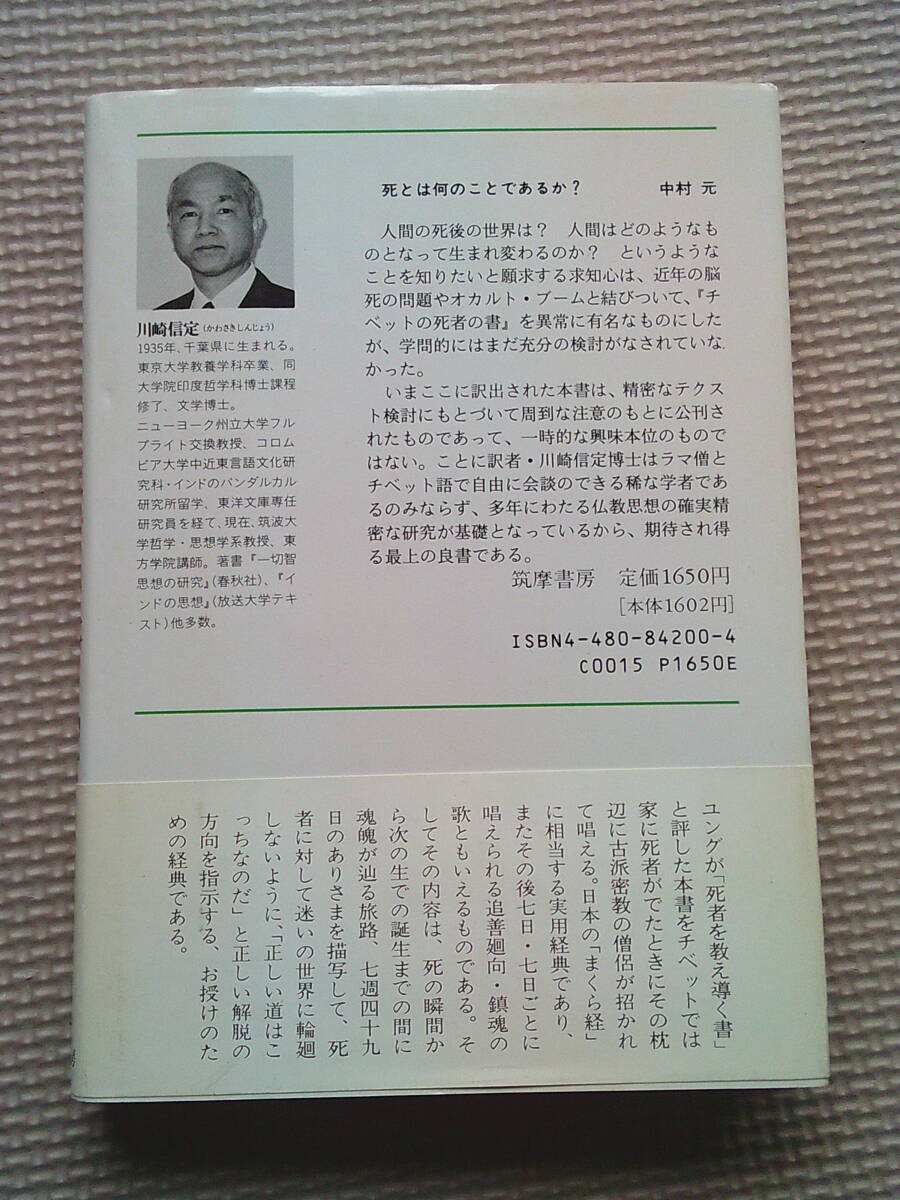 川崎信定(かわさきしんじょう)
1935年、千葉県に生まれる。
東京大学教養学科卒業、同
大学院印度哲学科博士課程
修了、文学博士。
ニューヨーク州立大学フル
ブライト交換教授、コロム
ビア大学中近東言語文化研
究科・インドのバンダルカル
研究所留学、東洋文庫専任
研究員を経て、現在、筑波大
学哲学・思想学系教授、東
方学院講師。著書『一切智
思想の研究』(春秋社)、『イ
ンドの思想』(放送大学テキ
スト)他多数。
死とは何のことであるか? 中村 元
人間の死後の世界は? 人間はどのようなも
のとなって生まれ変わるのか? というような
ことを知りたいと願求する求知心は、近年の脳
死の問題やオカルト・ブームと結びついて、『チ
ベットの死者の書』を異常に有名なものにした
が、学問的にはまだ充分の検討がなされていな
かった。
いまここに訳出された本書は、精密なテクス
ト検討にもとづいて周到な注意のもとに公刊さ
れたものであって、一時的な興味本位のもので
はない。ことに訳者・川崎信定博士はラマ僧と
チベット語で自由に会談のできる稀な学者であ
るのみならず、多年にわたる仏教思想の確実精
密な研究が基礎となっているから、期待され得
る最上の良書である。
筑摩書房 定価1650円
[本体1602円]
ISBN4-480-84200-4
C0015 P1650E
ユングが「死者を教え導く書」
と評した本書をチベットでは
家に死者がでたときにその枕
辺に古派密教の僧侶が招かれ
て唱える。日本の「まくら経」
に相当する実用経典であり、
またその後七日・七日ごとに
唱えられる追善廻向・鎮魂の
歌ともいえるものである。そ
してその内容は、死の瞬間か
ら次の生での誕生までの間に
魂魄が辿る旅路、七週四十九
日のありさまを描写して、死
者に対して迷いの世界に輪廻
しないように、「正しい道はこ
っちなのだ」と正しい解脱の
方向を指示する、お授けのた
めの経典である。